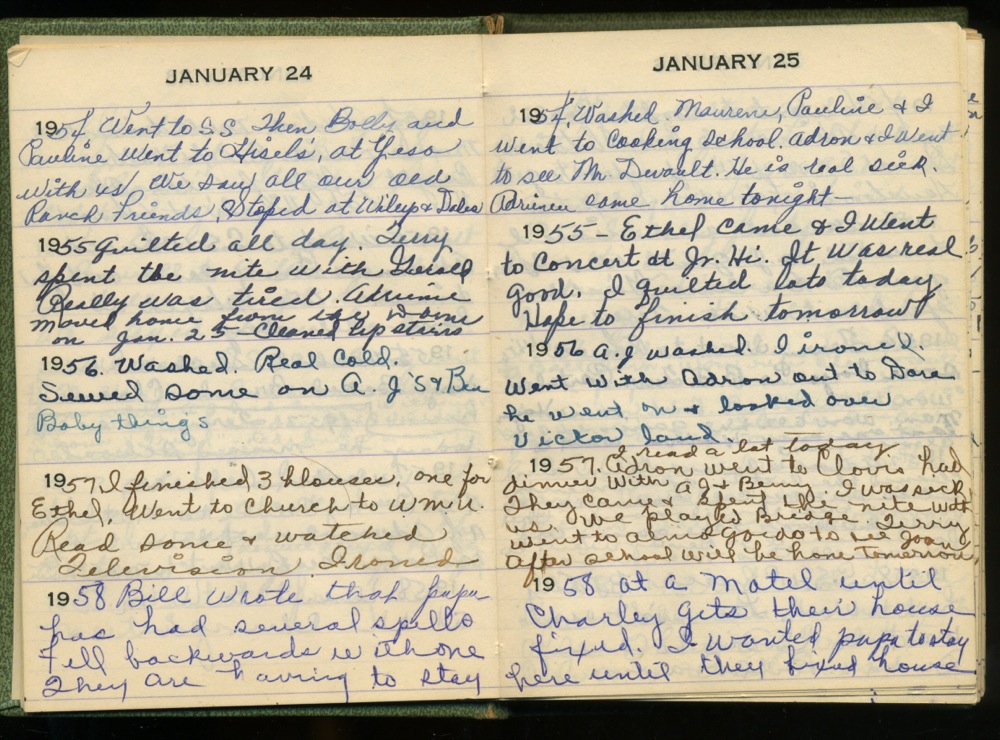 JANUARY 24
1954 Went to S S Then Bolly and
Pauline Went to Hisels', at Yeso
With us We saw all our old
Ranch Friends, Stoped at Wileys & Dales
1955 Quilted all day. Terry
spent the nite with
Really was tired. Adriene
moved home from the dorm
on Jan. 25 - Cleaned up stairs
1956. Washed. Real Cold.
Sewed some on A. J's & Ben
Baby things
1957. I finished 3 blouses, one for
Ethel, Went to Church to W M U.
Read some & watched
Television. Ironed
1958 Bill wrote that papa
has had several spells
Fell backwards with one
They are having to stay
JANUARY 25
1954, Washed. Maurene, Pauline & I
went to Cooking School. Adron & I Went
to see Mr. Devault. He is real sick.
Adrienen came home tonight -
1955 - Ethel came & I Went
to Concert at Jr. Hi. It Was real
good. I quilted lots today
Hope to finish tomorrow
1956 A. J washed. I ironed.
Went with Adron out to Dora
he went on & looked over
Victor land.
I read a lot today
1957. Adron went to Clovis had
dinner With A J & Benny. I was sick
They came & spent the nite with
us. We played Bridge. Terry
went to almogordo to see Joan
After school Will be home tomorrow
1958 at a Motel until
Charley gets their house
fixed. I wanted papa to stay
here until they fixed house